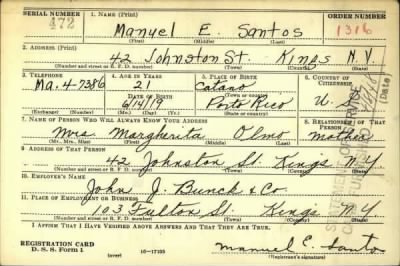 SERIAL NUMBER 1. NAME (Print) ORDER NUMBER
272 Manuel E. Santos 1316
(First) (Middle) (Last)
2. ADDRESS (Print)
42 Johnston St. Kings N.Y.
(Number and street or R. F. D. number) (Town) (County) (State)
3. TELEPHONE 4. AGE IN YEARS 5. PLACE OF BIRTH 6. COUNTRY OF CITIZENSHIP
Ma. 4-7386 21 Catano
DATE OF BIRTH
6/14/19 Porto Rico U. S.
(Exchange) (Number) (Mo.) (Day) (Yr.) (State or country)
7. NAME OF PERSON WHO WILL ALWAYS KNOW YOUR ADDRESS 8. RELATIONSHIP OF THAT PERSON
Mrs. Margherita Olmo Mother
(Mr., Mrs., Miss) (First) (Middle) (Last)
9. ADDRESS OF THAT PERSON
42 Johnston St. Kings N.Y.
(Number and street or R. F. D. number) (Town) (County) (State)
10. EMPLOYER'S NAME
John J. Bunck & Co.
11. PLACE OF EMPLOYMENT OR BUSINESS
103 Fulton St. Kings N.Y.
(Number and street or R. F. D. number) (Town) (County) (State)
I AFFIRM THAT I HAVE VERIFIED ABOVE ANSWERS AND THAT THEY ARE TRUE.
REGISTRATION CARD
D. S. S. Form 1 (over) 16-17105 Manuel E. Santos
(Registrant's signature)